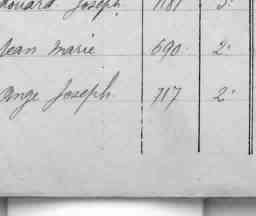 Joseph 1181
Jean Marie 690 2e
Ange Joseph 717 2e